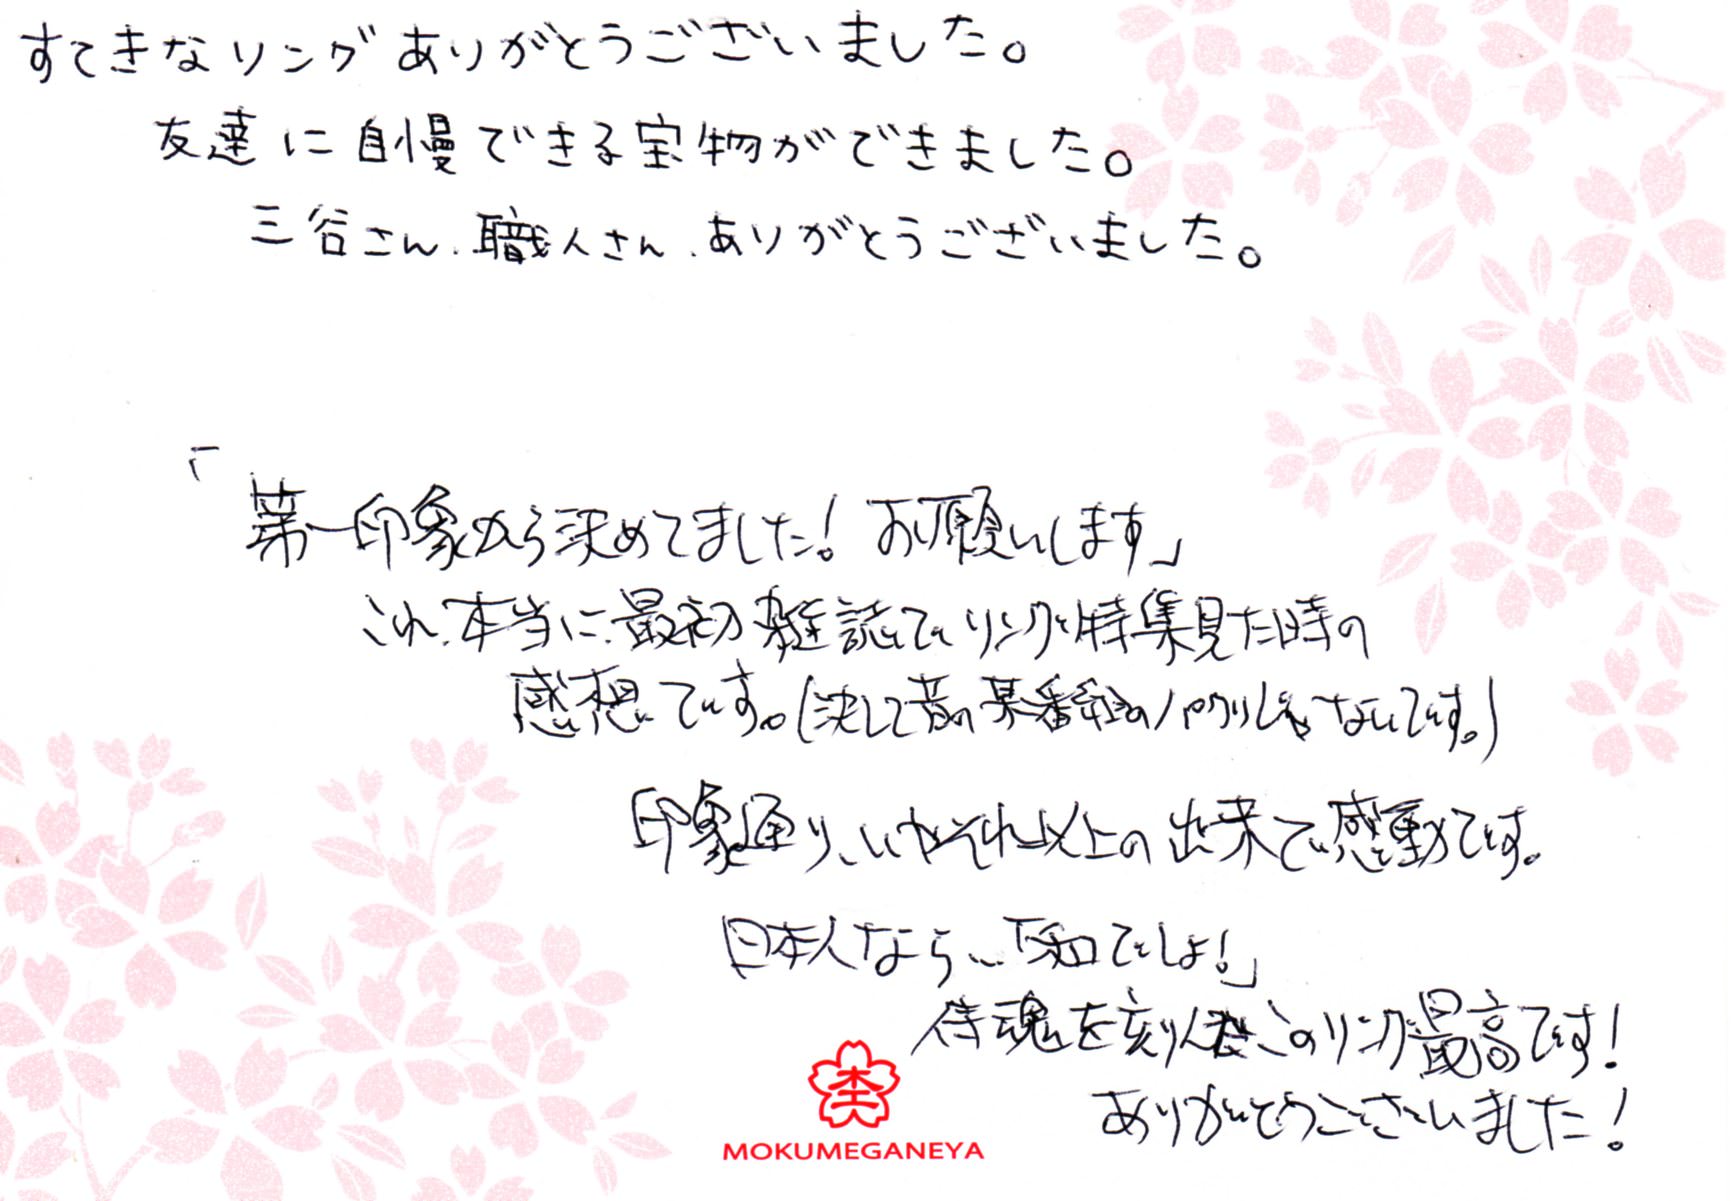 すてきなリングありがとうございました。
友達に自慢できる宝物ができました。
三谷さん、職人さん、ありがとうございました。
「第一印象から決めてました！お願いします」
これ、本当に、最初雑誌でリング特集見た時の
感想です。(決して昔の某番組のパクリじゃないです。)
印象通り、いやそれ以上の出来で感動です。
日本人なら…「和でしょ！」
侍魂を刻んだこのリング最高です！
ありがとうございました！
MOKUMEGANEYA